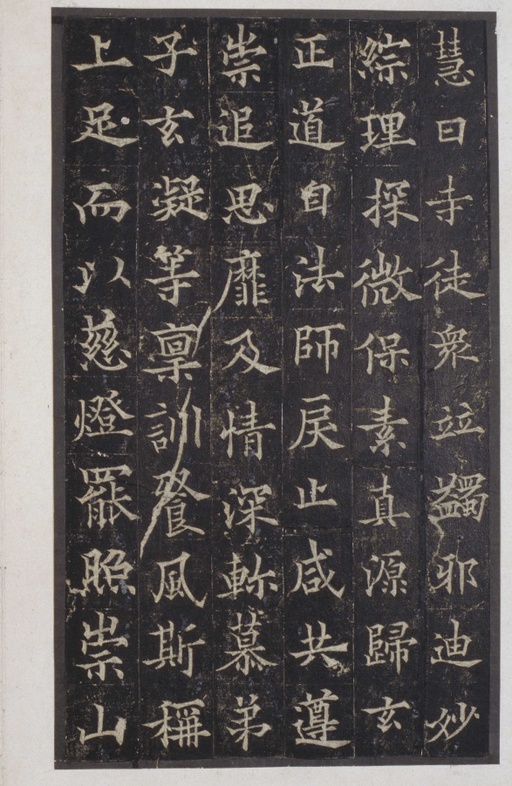 慧日寺徒衆竝蠲邪迪妙
綜理探微保素真源歸玄
正道自法師戾止咸共遵
崇追思靡及情深軫慕弟
子玄凝等禀訓飡風斯稱
上足而以慈燈罷照崇山